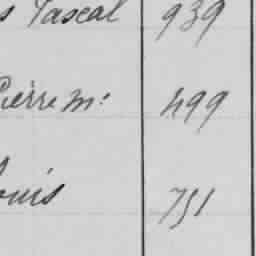 s Pascal 939
Pierre m: 499
ouis 751